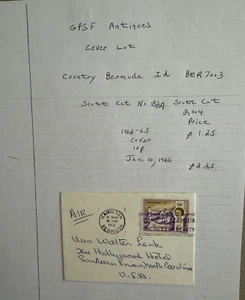 GPSF Antiques
Cover Lot
Country Bermuda Id BER7003
Scott Cat No Scott Cat
2004
Price
1962-65 $1.25
Cover
10p
Jan, 10, 1966
$2.25
AIR
HAMILTON
Mrs Walter
Hollywood Hotel
Southern Pines North Carolina
U.S.A.